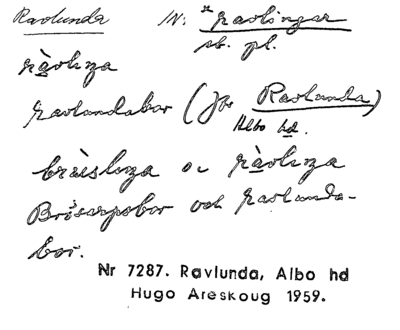 Ravlunda IN: *ravlingar
sb. pl.
ravlinga
ravlundabor (Jfr Ravlunda)
Albo hd.
o ravlinga
Brösarpsbor och ravlunda-
bor.
Nr 7287. Ravlunda, Albo hd
Hugo Areskoug 1959.